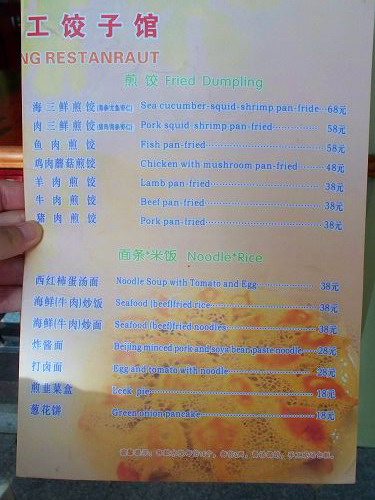 工饺子馆
NG RESTANRAUT
煎 饺 Fried Dumpling
海三鲜煎饺 Sea cucumber-squid-shrimp pan-fride 68元
肉三鲜煎饺 Pork squid-shrimp pan-fried 58元
鱼肉煎饺 Fish pan-fried 58元
鸡肉蘑菇煎饺 Chicken with mushroom pan-fried 48元
羊肉煎饺 Lamb pan-fried 38元
牛肉煎饺 Beef pan-fried 38元
猪肉煎饺 Pork pan-fried 38元
面条*米饭 Noodle*Rice
西红柿蛋汤面 Noodle Soup with Tomato and Egg 38元
海鲜(牛肉)炒饭 Seafood (beef)fried rice 38元
海鲜(牛肉)炒面 Seafood (beef)fried noodles 38元
炸酱面 Beijing minced pork and soya bean paste noodle 28元
打卤面 Egg and tomato with noodle 28元
煎韭菜盒 Leek pie 18元
葱花饼 Green onion pancake 18元